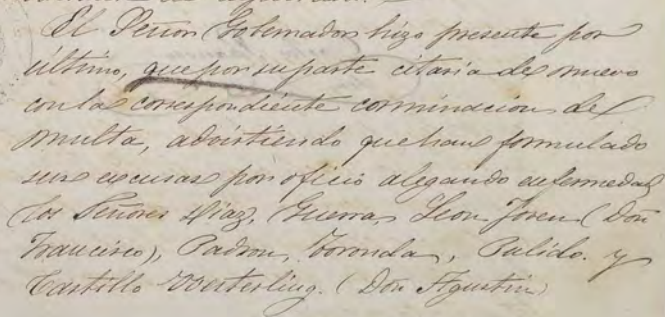 El Señor Gobernador hizo presente por
último, que por su parte citaria de nuevo
con la correspondiente conminacion de
multa, advirtiendo que han formulado
sus excusas por oficio alegando enfermedad
los Señores Diaz, Guerra, Leon Joven (Don
Francisco), Padron, Poronda, Pulido y
Castillo Westerling. (Don Agustin)